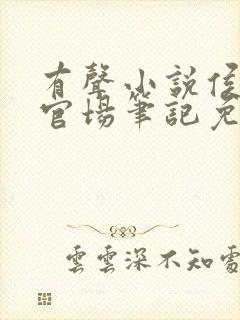 有聲小説侯
官場筆記免
雲雲深不知處